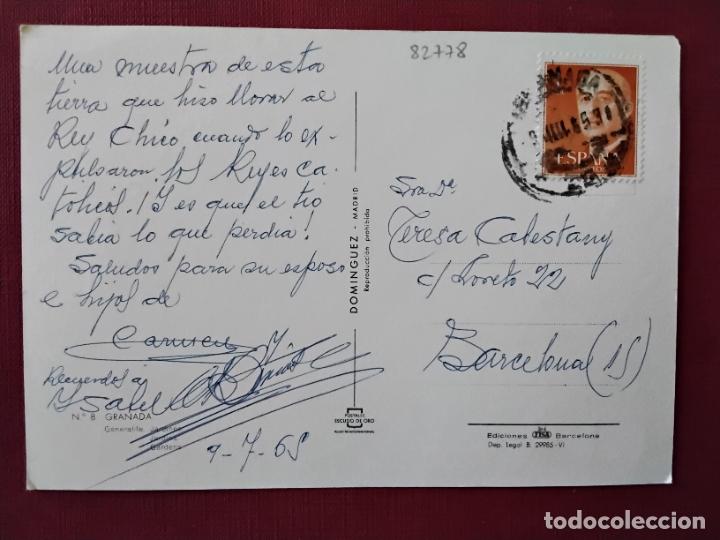 82778
Una muestra de esta
tierra que hizo llorar al
Rey Chico cuando lo ex-
pulsaron los Reyes Ca-
tolicos. ¡Y es que el tio
sabia lo que perdia!
Saludos para su esposo
e hijos de
Carmen y
Recuerdos a
Ysabel
Nº 8 GRANADA
Generalife. Jardines
Gardens
9-7-65
DOMINGUEZ - MADRID
Reproducción prohibida
POSTALES
ESCUDO DE ORO
ESPAÑA
Sra Dª
Teresa Calestany
c/ Loreto 22
Barcelona (15)
Ediciones FISA Barcelona
Dep. Legal B. 29985-VI
todocoleccion.net